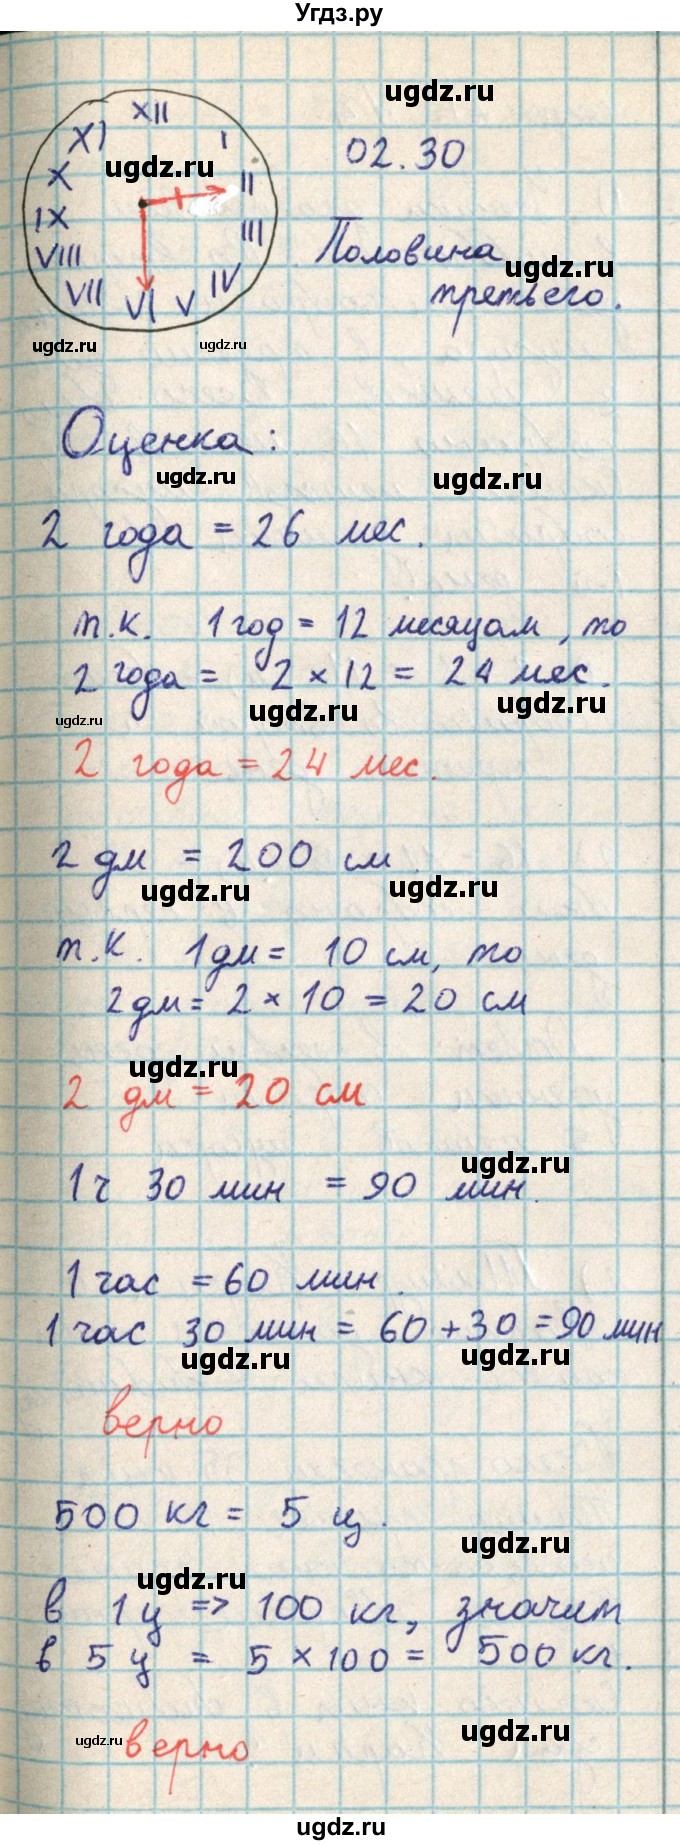 Угдз.ру
ugdz.ru
XII
XI
I
ugdz.ru
02.30
X
II
IX
III
Половина
ugdz.ru
VIII
VII
VI
V
IV
третьего.
ugdz.ru
ugdz.ru
Оценка:
ugdz.ru
ugdz.ru
2 года = 26 мес.
т.к. 1 год = 12 месяцам, то
2 года = 2 × 12 = 24 мес.
ugdz.ru
ugdz.ru
ugdz.ru
2 года = 24 мес.
2 дм = 200 см
ugdz.ru
ugdz.ru
т.к. 1 дм = 10 см, то
2 дм = 2 × 10 = 20 см
ugdz.ru
2 дм = 20 см
ugdz.ru
1 ч 30 мин = 90 мин.
1 час = 60 мин.
1 час 30 мин = 60 + 30 = 90 мин
ugdz.ru
ugdz.ru
верно
500 кг = 5 ц.
ugdz.ru
ugdz.ru
в 1 ц => 100 кг, значит
в 5 ц = 5 × 100 = 500 кг.
ugdz.ru
верно
ugdz.ru
ugdz.ru